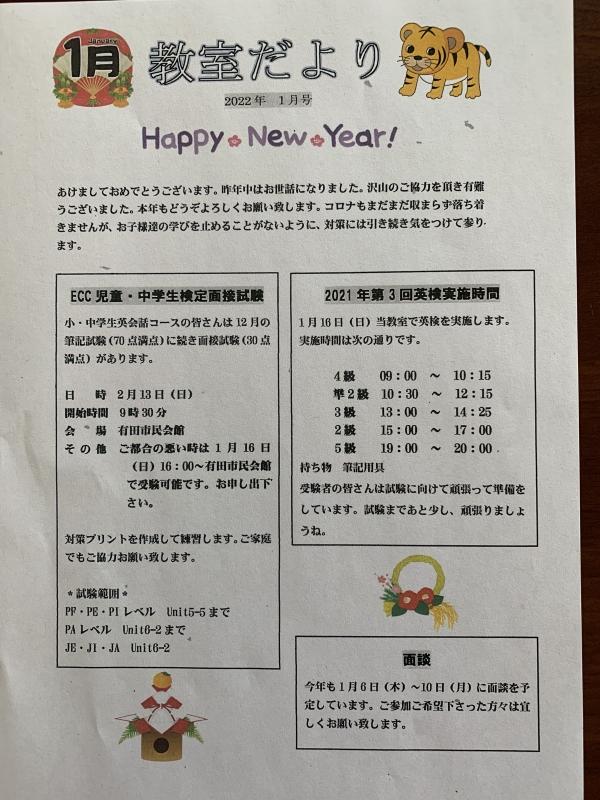 January
1月
教室だより
2022年 1月号
Happy New Year!
あけましておめでとうございます。昨年中はお世話になりました。沢山のご協力を頂き有難
うございました。本年もどうぞよろしくお願い致します。コロナもまだまだ収まらず落ち着
きませんが、お子様達の学びを止めることがないように、対策には引き続き気をつけて参り
ます。
ECC 児童・中学生検定面接試験
小・中学生英会話コースの皆さんは12月の
筆記試験(70点満点)に続き面接試験(30点
満点)があります。
日 時 2月13日(日)
開始時間 9時30分
会 場 有田市民会館
その他 ご都合の悪い時は1月16日
(日)16:00~有田市民会館
で受験可能です。お申し出下
さい。
対策プリントを作成して練習します。ご家庭
でもご協力お願い致します。
*試験範囲*
PF・PE・PIレベル Unit5-5まで
PAレベル Unit6-2まで
JE・JI・JA Unit6-2
2021年第3回英検実施時間
1月16日(日)当教室で英検を実施します。
実施時間は次の通りです。
4級 09:00 ~ 10:15
準2級 10:30 ~ 12:15
3級 13:00 ~ 14:25
2級 15:00 ~ 17:00
5級 19:00 ~ 20:00
持ち物 筆記用具
受験者の皆さんは試験に向けて頑張って準備を
しています。試験まであと少し、頑張りましょ
うね。
面談
今年も1月6日(木)~10日(月)に面談を予
定しています。ご参加ご希望下さった方々は宜
しくお願い致します。